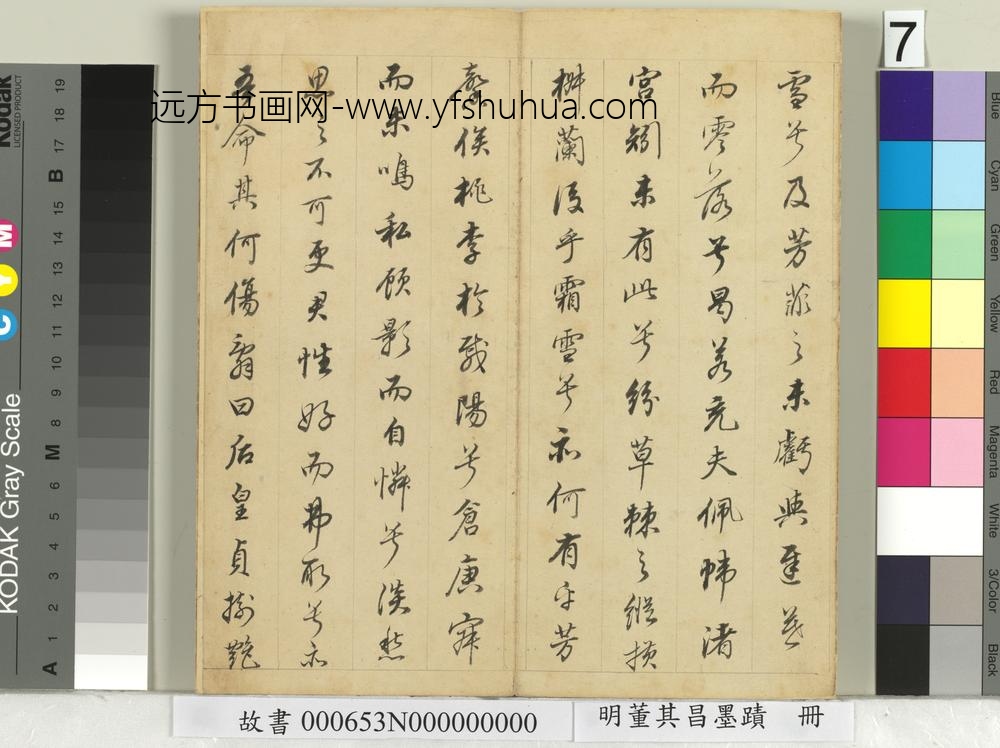 雪兮及芳菲之未虧與遲暮
而零落兮曷若充夫佩幃渚
宮矧未有此兮紛草棘之縱橫
椒蘭後乎霜雪兮亦何有乎芳
馨俟桃李於載陽兮倉庚寂
而未鳴私顧影而自憐兮淡愁
思之不可更君性好而弗取兮亦
吾命其何傷辭曰后皇貞樹艷
远方书画网-www.yfshuhua.com
7
故書 000653N000000000
明董其昌墨蹟 冊
Kodak
LICENSED PRODUCT
KODAK Gray Scale
C Y M
A 1 2 3 4 5 6 M 8 9 10 11 12 13 14 15 B 17 18 19
Blue
Cyan
Green
Yellow
Red
Magenta
White
3/Color
Black